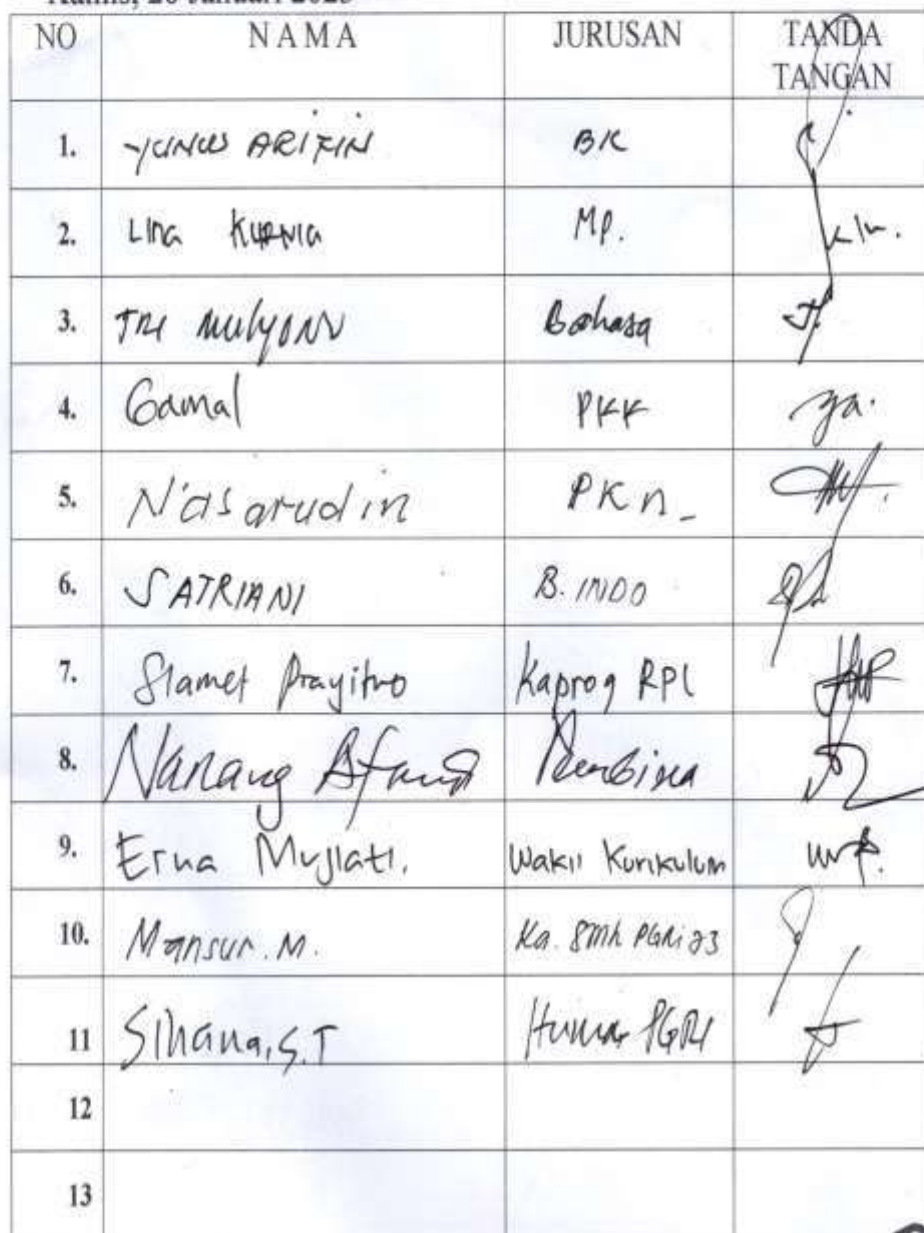 Kamis, 26 Januari 2023
NO NAMA JURUSAN TANDA TANGAN
1. YUNUS ARIFIN BK
2. Lina KURNIA MP.
3. TRI MULYONO Bahasa
4. Gamal PKK ga.
5. Nasarudin PKn
6. SATRIANI B. INDO
7. Slamet Prayitno Kaprog RPL
8. Nanang Pembina
9. Erna Mujiati. Wakil Kurikulum
10. Mansur. M. Ka. SMK PGRI 23
11 Sihana, S.T Humas PGRI
12
13